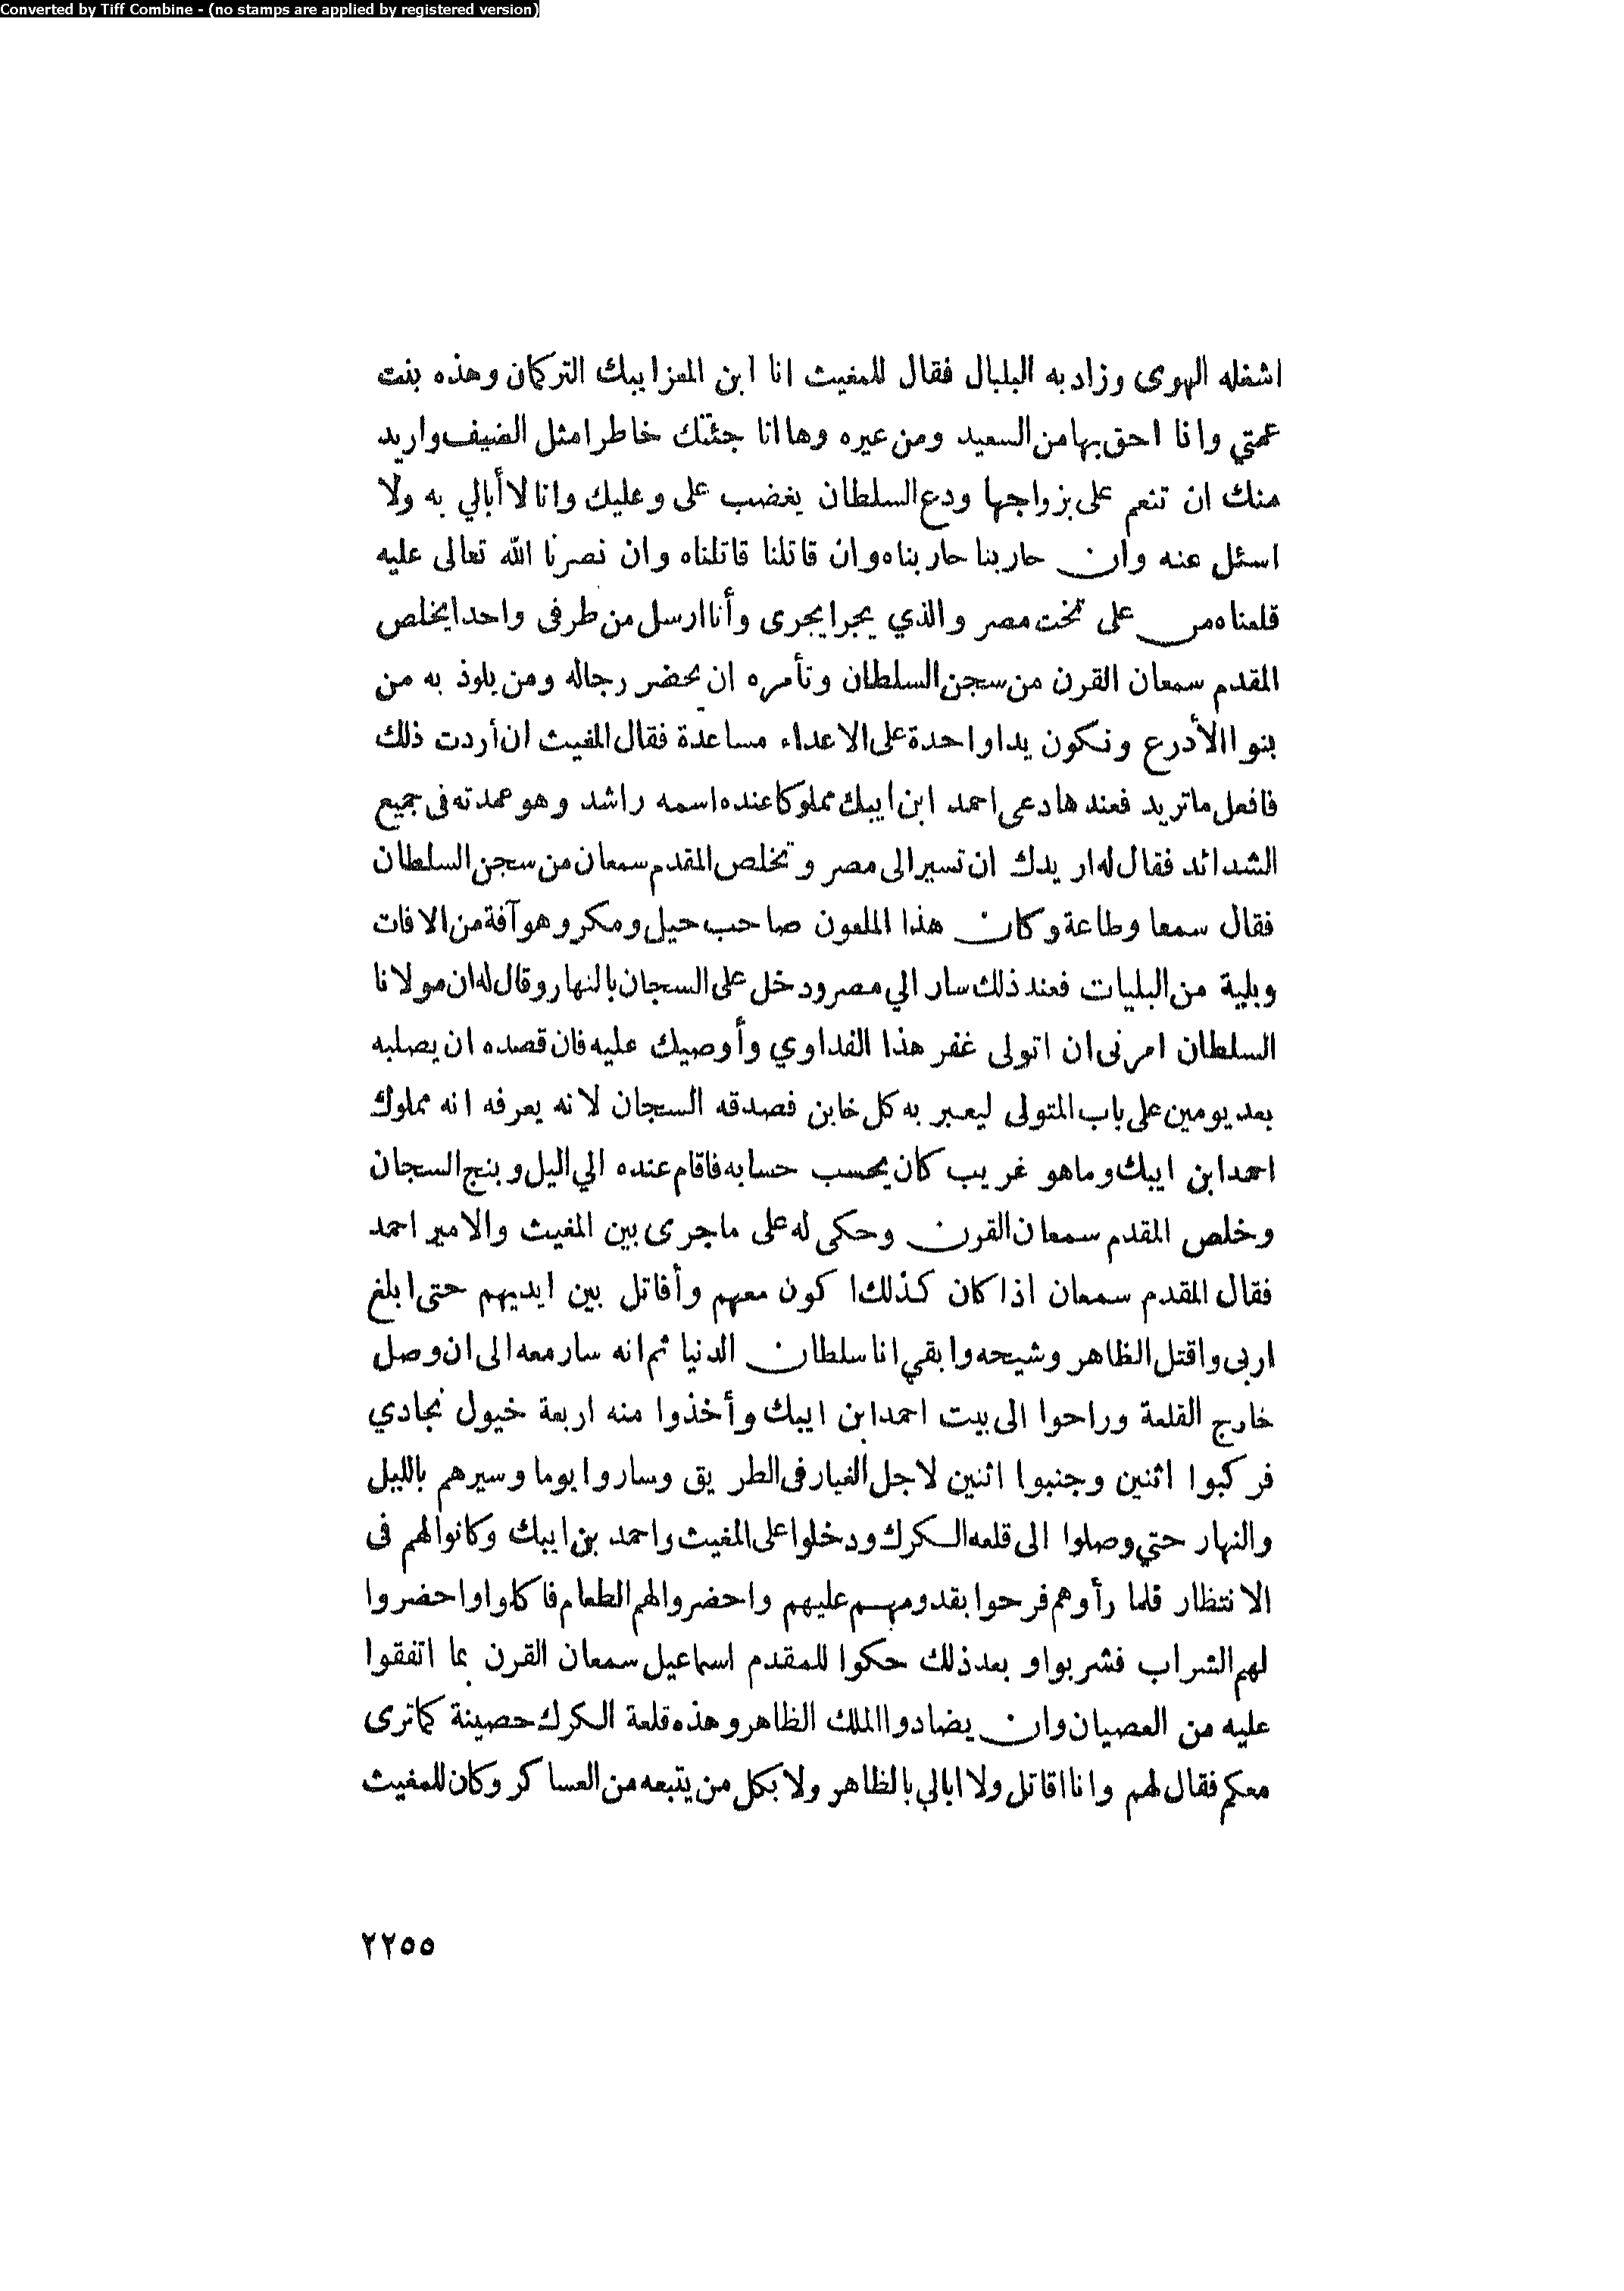 Converted by Tiff Combine - (no stamps are applied by registered version)
اشغله الهوى وزاد به البلبال فقال للمغيث انا ابن المعزايبك التركمان وهذه بنت
عمتي وانا احق بها من السعيد ومن عيره وها انا جئتك خاطرا مثل الضيف واريد
منك ان تنعم على بزواجها ودع السلطان يغضب على وعليك وانا لا أبالي به ولا
اسئل عنه وان حاربنا حاربناه وان قاتلنا قاتلناه وان نصرنا الله تعالى عليه
قلعناه من على تخت مصر والذي يجرا يجرى وأنا ارسل من طرفى واحدا يخلص
المقدم سمعان القرن من سجن السلطان وتأمره ان يحضر رجاله ومن يلوذ به من
بنوا الأدرع ونكون يدا واحدة على الاعداء مساعدة فقال المغيث ان أردت ذلك
فافعل ماتريد فعندها دعى احمد ابن ايبك مملوكا عنده اسمه راشد وهو عمدته فى جميع
الشدائد فقال له اريدك ان تسير الى مصر وتخلص المقدم سمعان من سجن السلطان
فقال سمعا وطاعة وكان هذا الملعون صاحب حيل ومكر وهو آفة من الافات
وبلية من البليات فعند ذلك سار الي مصر ودخل على السجان بالنهار وقال له ان مولانا
السلطان امرنى ان اتولى غفر هذا الفداوي وأوصيك عليه فان قصده ان يصلبه
بعد يومين على باب المتولى ليعبر به كل خاين فصدقه السجان لانه يعرفه انه مملوك
احمد ابن ايبك وماهو غريب كان يحسب حسابه فاقام عنده الي اليل وبنج السجان
وخلص المقدم سمعان القرن وحكى له على ماجرى بين المغيث والامير احمد
فقال المقدم سمعان اذا كان كذلك اكون معهم وأقاتل بين ايديهم حتى ابلغ
اربى واقتل الظاهر وشيحه وابقي انا سلطان الدنيا ثم انه سار معه الى ان وصل
خارج القلعة وراحوا الى بيت احمد ابن ايبك وأخذوا منه اربعة خيول نجادي
فركبوا اثنين وجنبوا اثنين لاجل الغيار فى الطريق وساروا يوما وسيرهم بالليل
والنهار حتي وصلوا الى قلعه الكرك ودخلوا على المغيث واحمد بن ايبك وكانوا لهم فى
الانتظار قلما رأوهم فرحوا بقدومهم عليهم واحضروا لهم الطعام فاكلوا واحضروا
لهم الشراب فشربوا وبعد ذلك حكوا للمقدم اسماعيل سمعان القرن بما اتفقوا
عليه من العصيان وان يضادوا الملك الظاهر وهذه قلعة الكرك حصينة كما ترى
معكم فقال لهم وانا اقاتل ولا ابالي بالظاهر ولا بكل من يتبعه من العساكر وكان للمغيث
٢٢٥٥